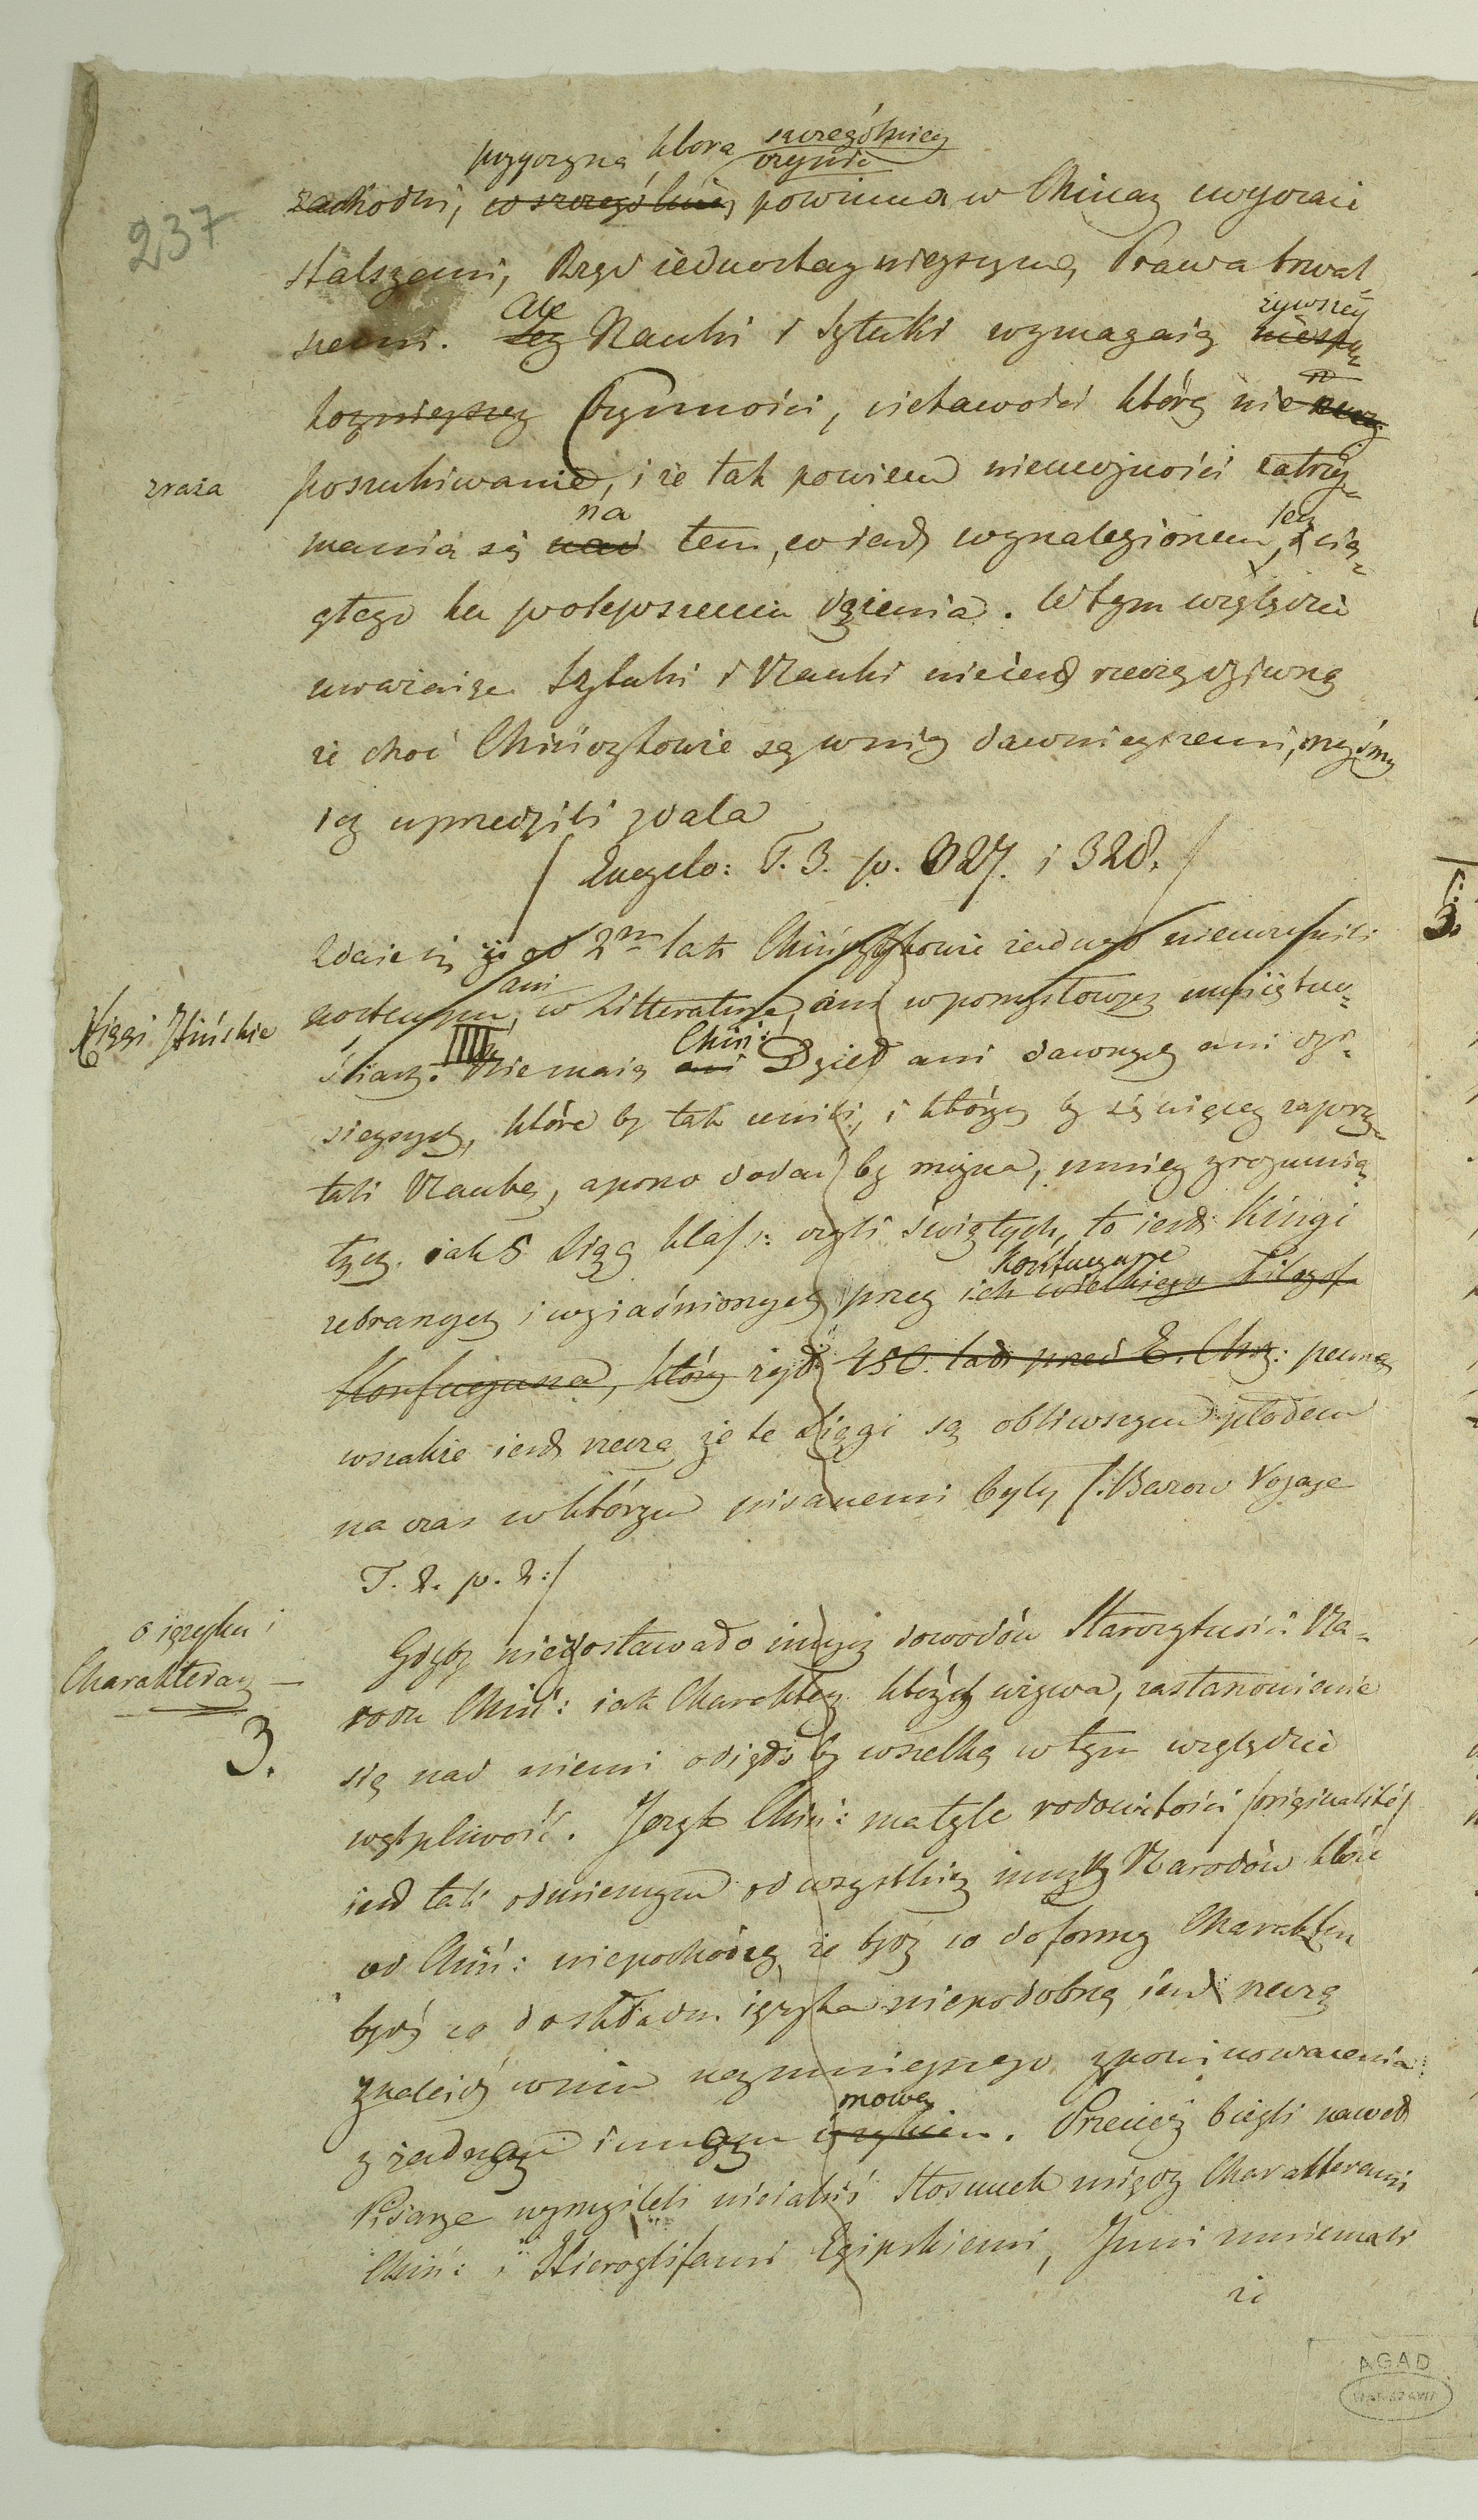 237
przyczyna która szczególniey
czyni
zachodzi, w szczególniey powinna w Chinach uczynić
stalszemi, Rząd iednostaynieyszym, Prawa trwal
szemi. Ale Nauki i Sztuki wymagaią żywszey
Czynności, ciekawości którą nie
zraża
poszukiwanie, i że tak powiem niemożności zatrzy-
mania się na tem, co iest wynalezionem, i cią-
głego ku polepszeniu dążenia. W tym względzie
uważaiąc Sztuki i Nauki nie iest rzeczą dziwną
że choć Chińczykowie są w nich dawnieyszemi, myśmy
ich uprzedzili zdala
/ Encyclo: T. 3. p. 327. i 328. /
Zdaie się że od 2m lat Chińczykowie żadnego nieuczynili
Xięgi Hińskie
postempu, ani w Litteraturze, ani w pomysłowych umieiętno-
ściach. Nie maią Chiń: Dzieł ani dawnych ani dzi-
sieyszych, które by tak cenili, i których by się więcey zaprzą-
tali Nauką, a pono dodać by można, mniey zrozumia
łych. iak 5 Xiąg klass: czyli świętych, to iest Kingi
Konfucyusze
zebranych i wyiaśnionych przez ich wielkiego Filozof
Konfucyusza, który żył 450. lat przed E. Chrz: pewną
wszakże iest rzeczą że te Xięgi są osobliwszym płodem
na czas w którym pisanemi były /: Barow Voyage
T. 2. p. 2:/
o ięzyku i
Charakterach —
3.
Gdyby niezostawało innych dowodów Starożytności Na-
rodu Chiń: iak Charaktery których używa, zastanowienie
się nad niemi odięło by wszelką w tym względzie
wątpliwość. Język Chiń: ma tyle rodowitości /originalité/
iest tak odmiennym od wszystkich innych Narodów które
od Chiń: niepochodzą, że bądź co do formy Charakteru
bądź co do składu ięzyka niepodobną iest rzeczą
znaleść w nim naymnieyszego spowinowacenia
z żadną inną mową. Przecież biegli nawet
Pisarze wymyślili nieiakiś Stosunek między Charakterami
Chiń: i Hieroglifami Egipskiemi, Inni mniemali
że
3.
AGAD
WARSZAWA